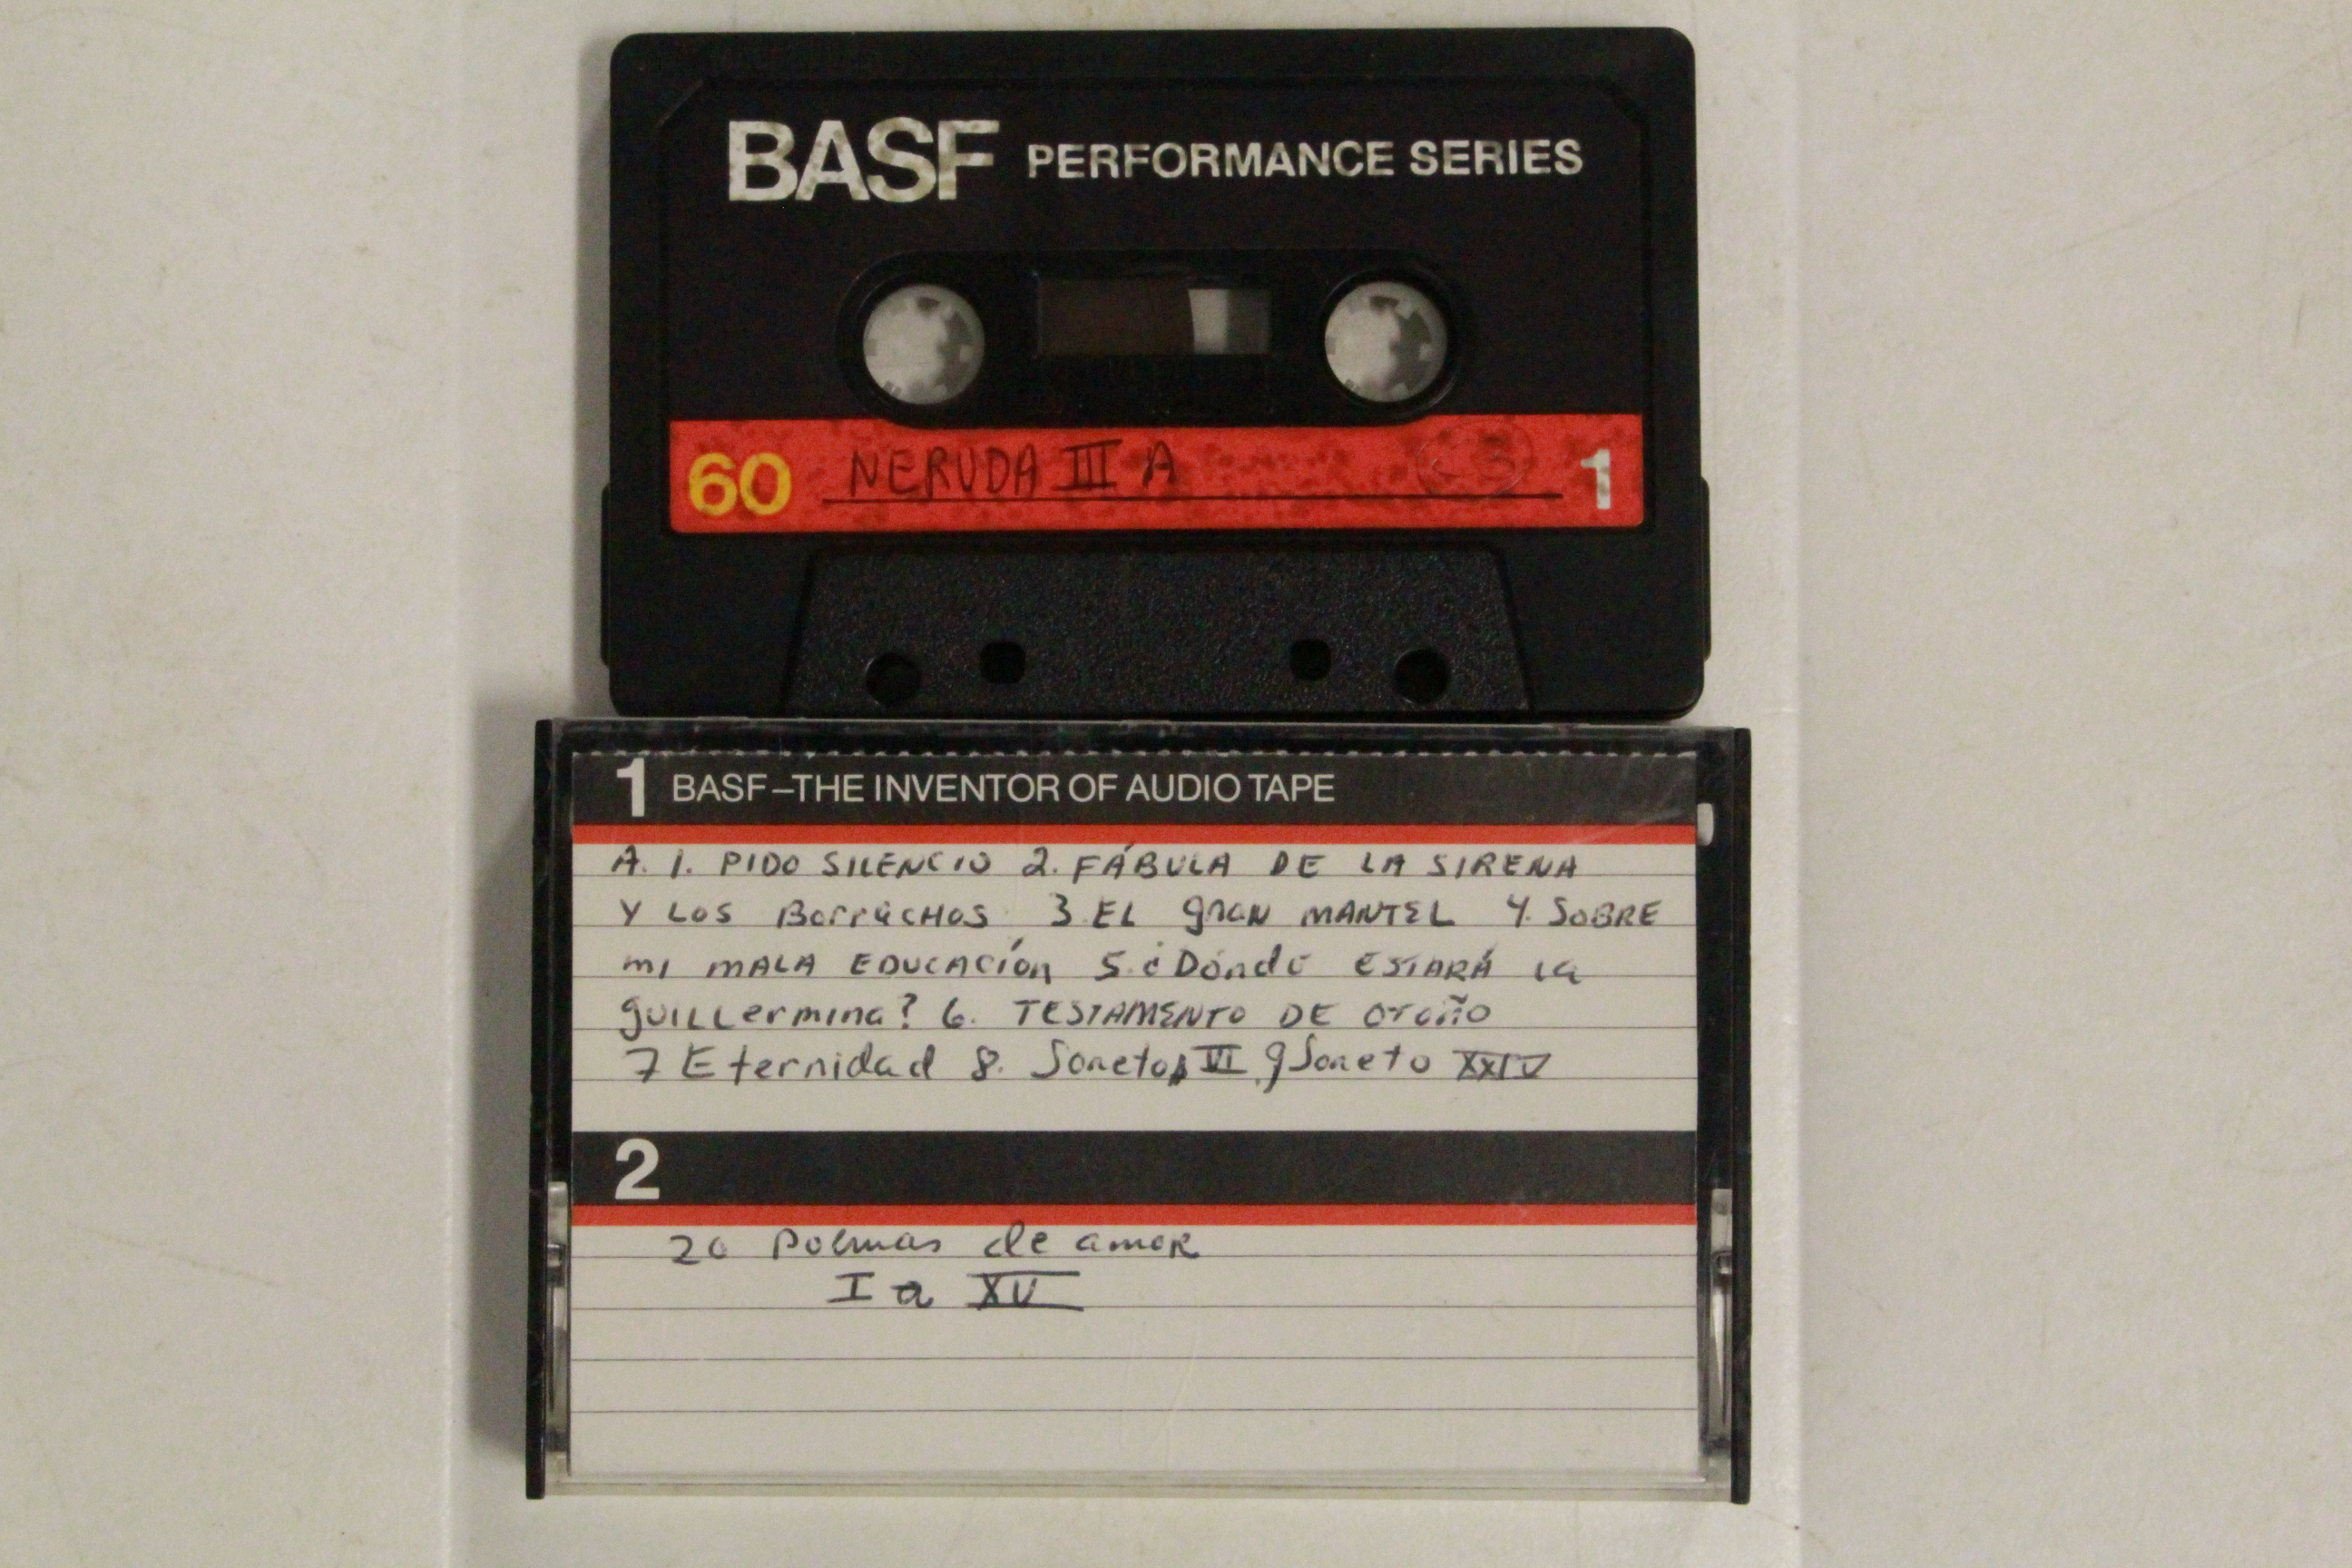 BASF PERFORMANCE SERIES
60 NERUDA III A 1
1 BASF–THE INVENTOR OF AUDIO TAPE
A. 1. PIDO SILENCIO 2. FÁBULA DE LA SIRENA
Y LOS BorrACHOS 3 EL gran MANTEL 4. SOBRE
MI MALA EDUCACIón 5. ¿Dónde ESTARÁ la
guILLermina? 6. TESTAMENTO DE OTOÑO
7 Eternidad 8. Soneto VI 9 Soneto XXIV
2
20 Poemas de amor
I a XV